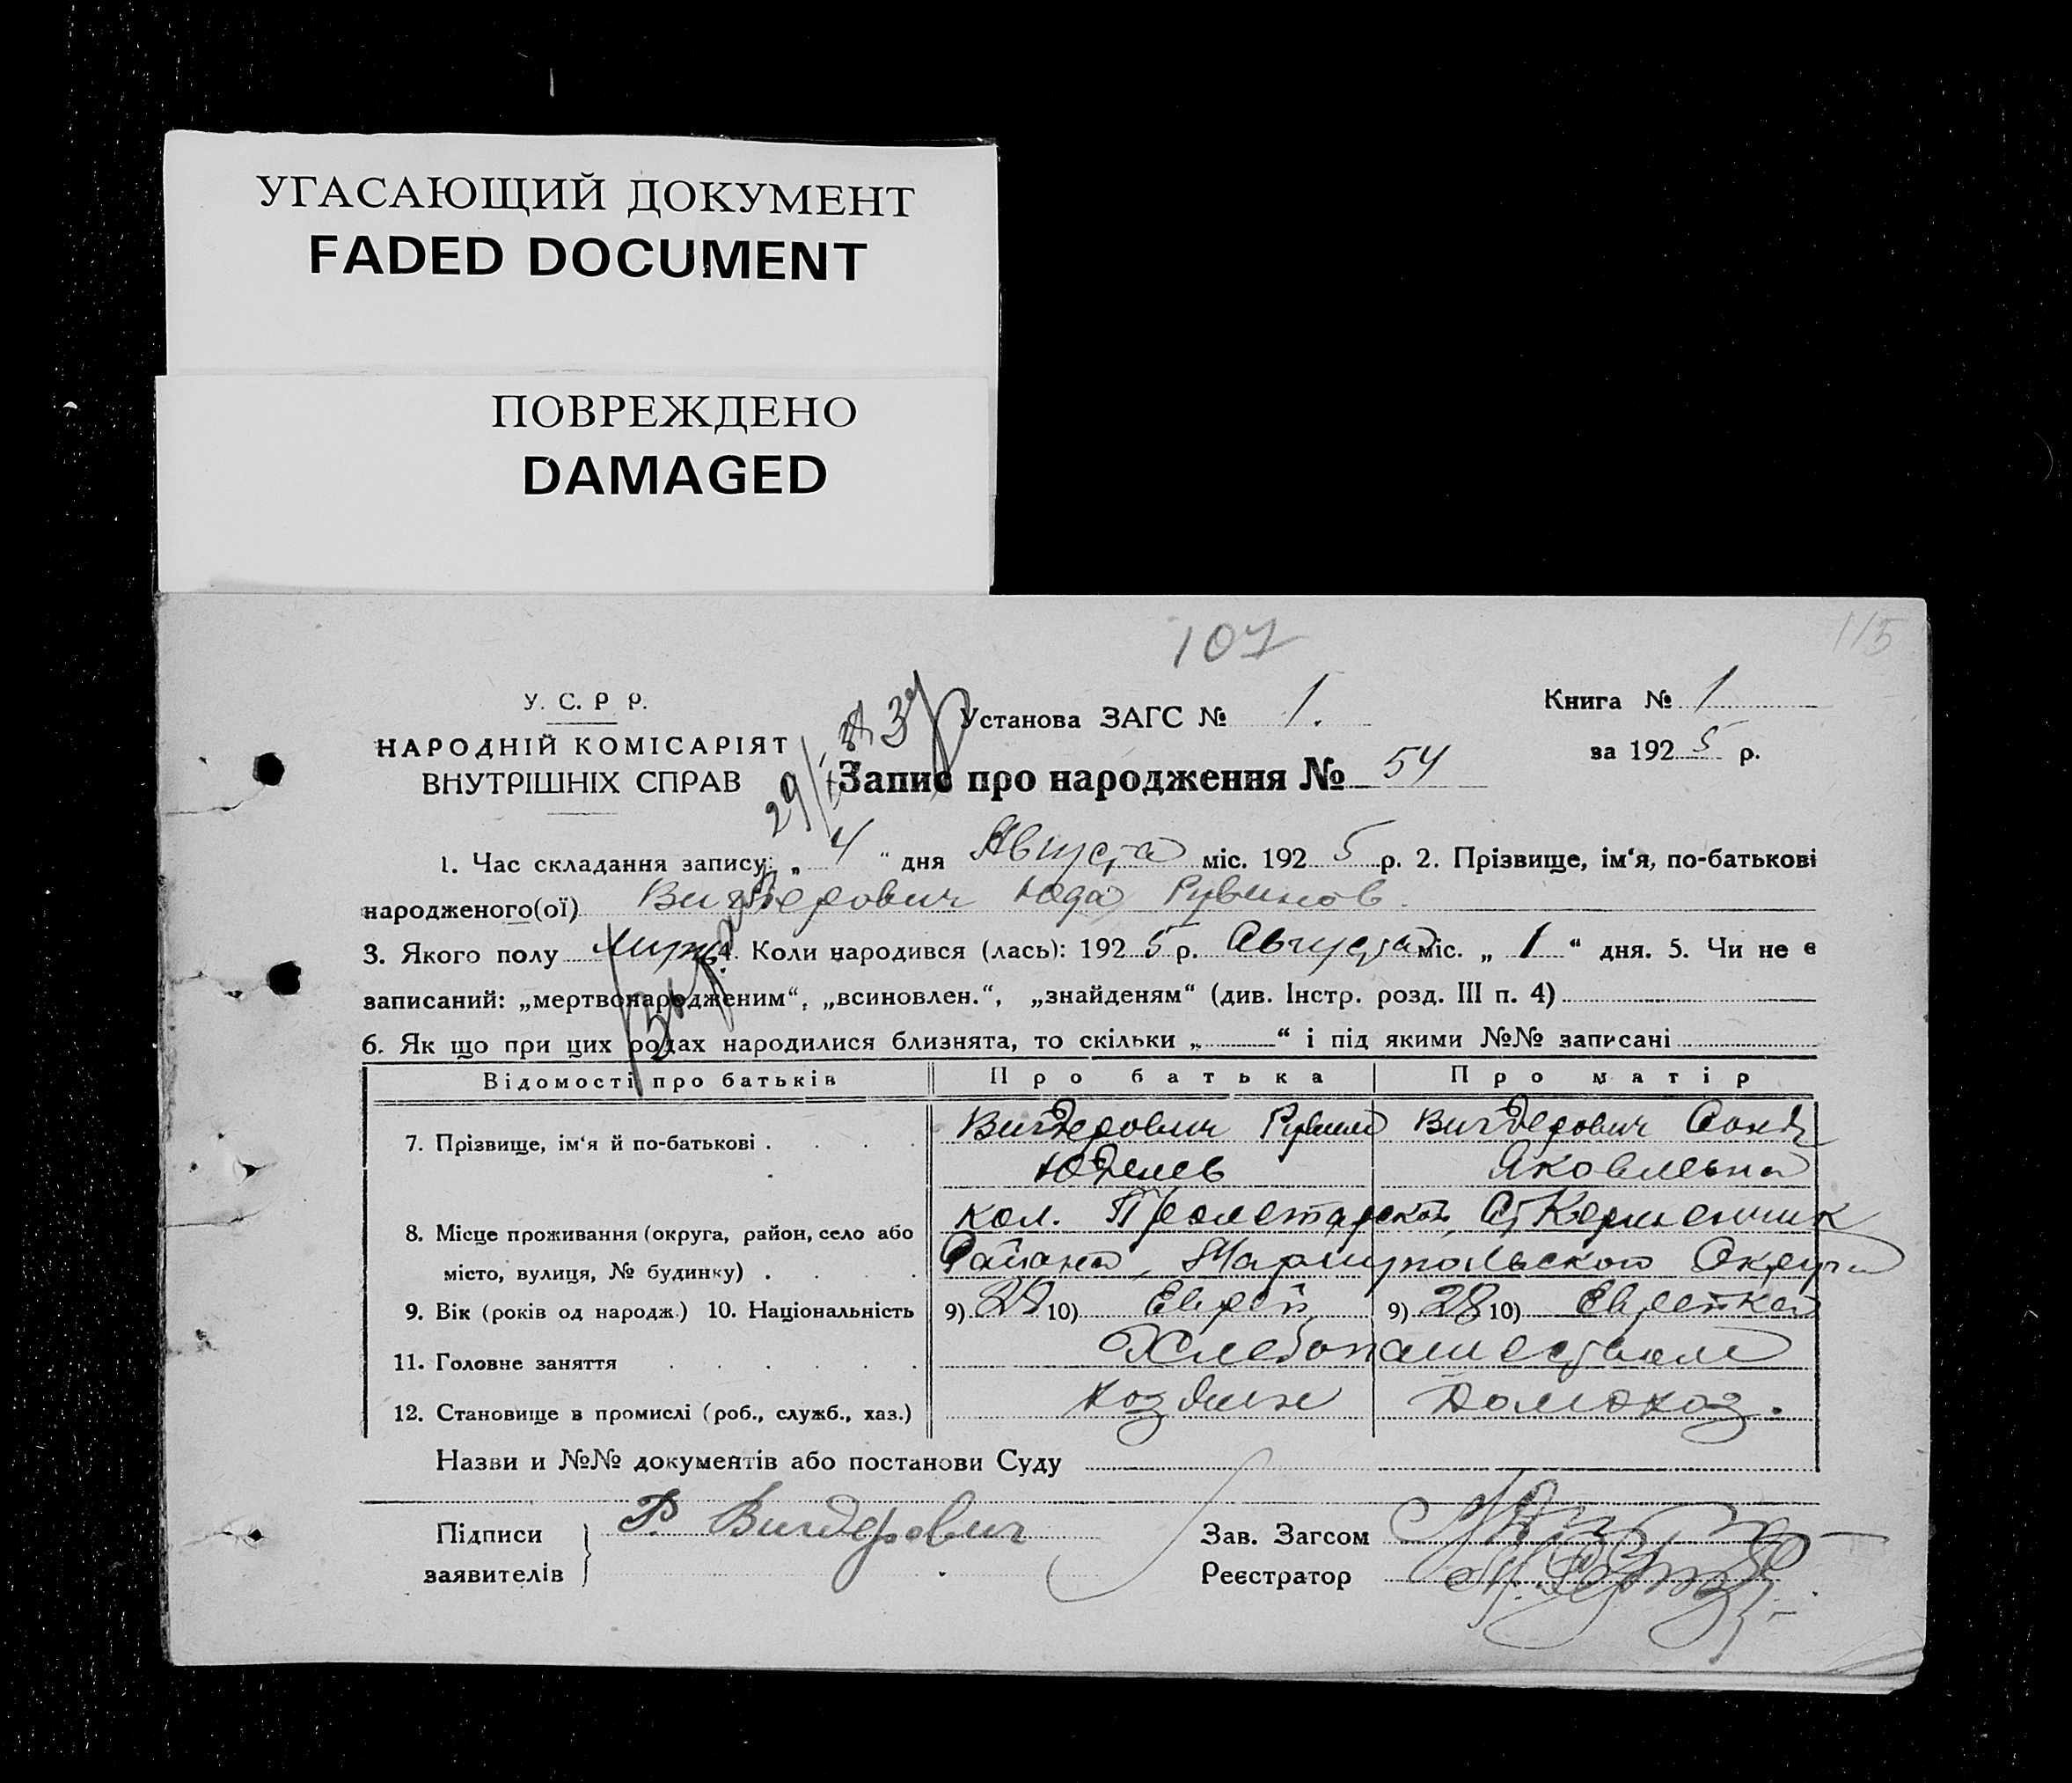 УГАСАЮЩИЙ ДОКУМЕНТ
FADED DOCUMENT
ПОВРЕЖДЕНО
DAMAGED
107
115
У. С. Р Р.
НАРОДНІЙ КОМІСАРІЯТ
ВНУТРІШНІХ СПРАВ
Установа ЗАГС № 1.
Книга № 1
за 1925 р.
Запис про народження № 54
1. Час складання запису: „ 4 “ дня Августа міс. 1925 р. 2. Прізвище, ім‘я, по-батькові
народженого(ої) Вигдерович Юда Рувинов
3. Якого полу муж. 4. Коли народився (лась): 1925 р. Августа міс. „ 1 “ дня. 5. Чи не є
записаний: „мертвонародженим“, „всиновлен.“, „знайденям“ (див. Інстр. розд. III п. 4)
6. Як що при цих родах народилися близнята, то скільки „ “ і під якими №№ записані
Відомості про батьків Про батька Про матір
7. Прізвище, ім‘я й по-батькові . Вигдерович Рувин Вигдерович
Юделев Яковлевна
8. Місце проживання (округа, район, село або кол. Пролетарской, Ст Керменчик
місто, вулиця, № будинку) . Района, Мариупольского Округа
9. Вік (років од народж.) 10. Національність 9) 29 10) Еврей 9) 28 10) Еврейка
11. Головне заняття Хлебопашеством
12. Становище в промислі (роб., служб., хаз.) хозяин Домохоз.
Назви и №№ документів або постанови Суду
Підписи Р. Вигдерович Зав. Загсом
заявителів Реєстратор